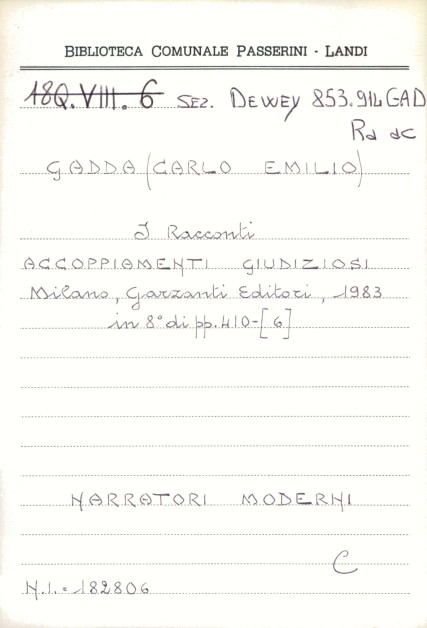 BIBLIOTECA COMUNALE PASSERINI - LANDI
18Q.VIII.6 SEZ. DEWEY 853.914 GAD
Rd ac
GADDA (CARLO EMILIO)
I Racconti
ACCOPPIAMENTI GIUDIZIOSI
Milano, Garzanti Editori, 1983
in 8° di pp. 410-[6]
NARRATORI MODERNI
C
N.I. = 182806